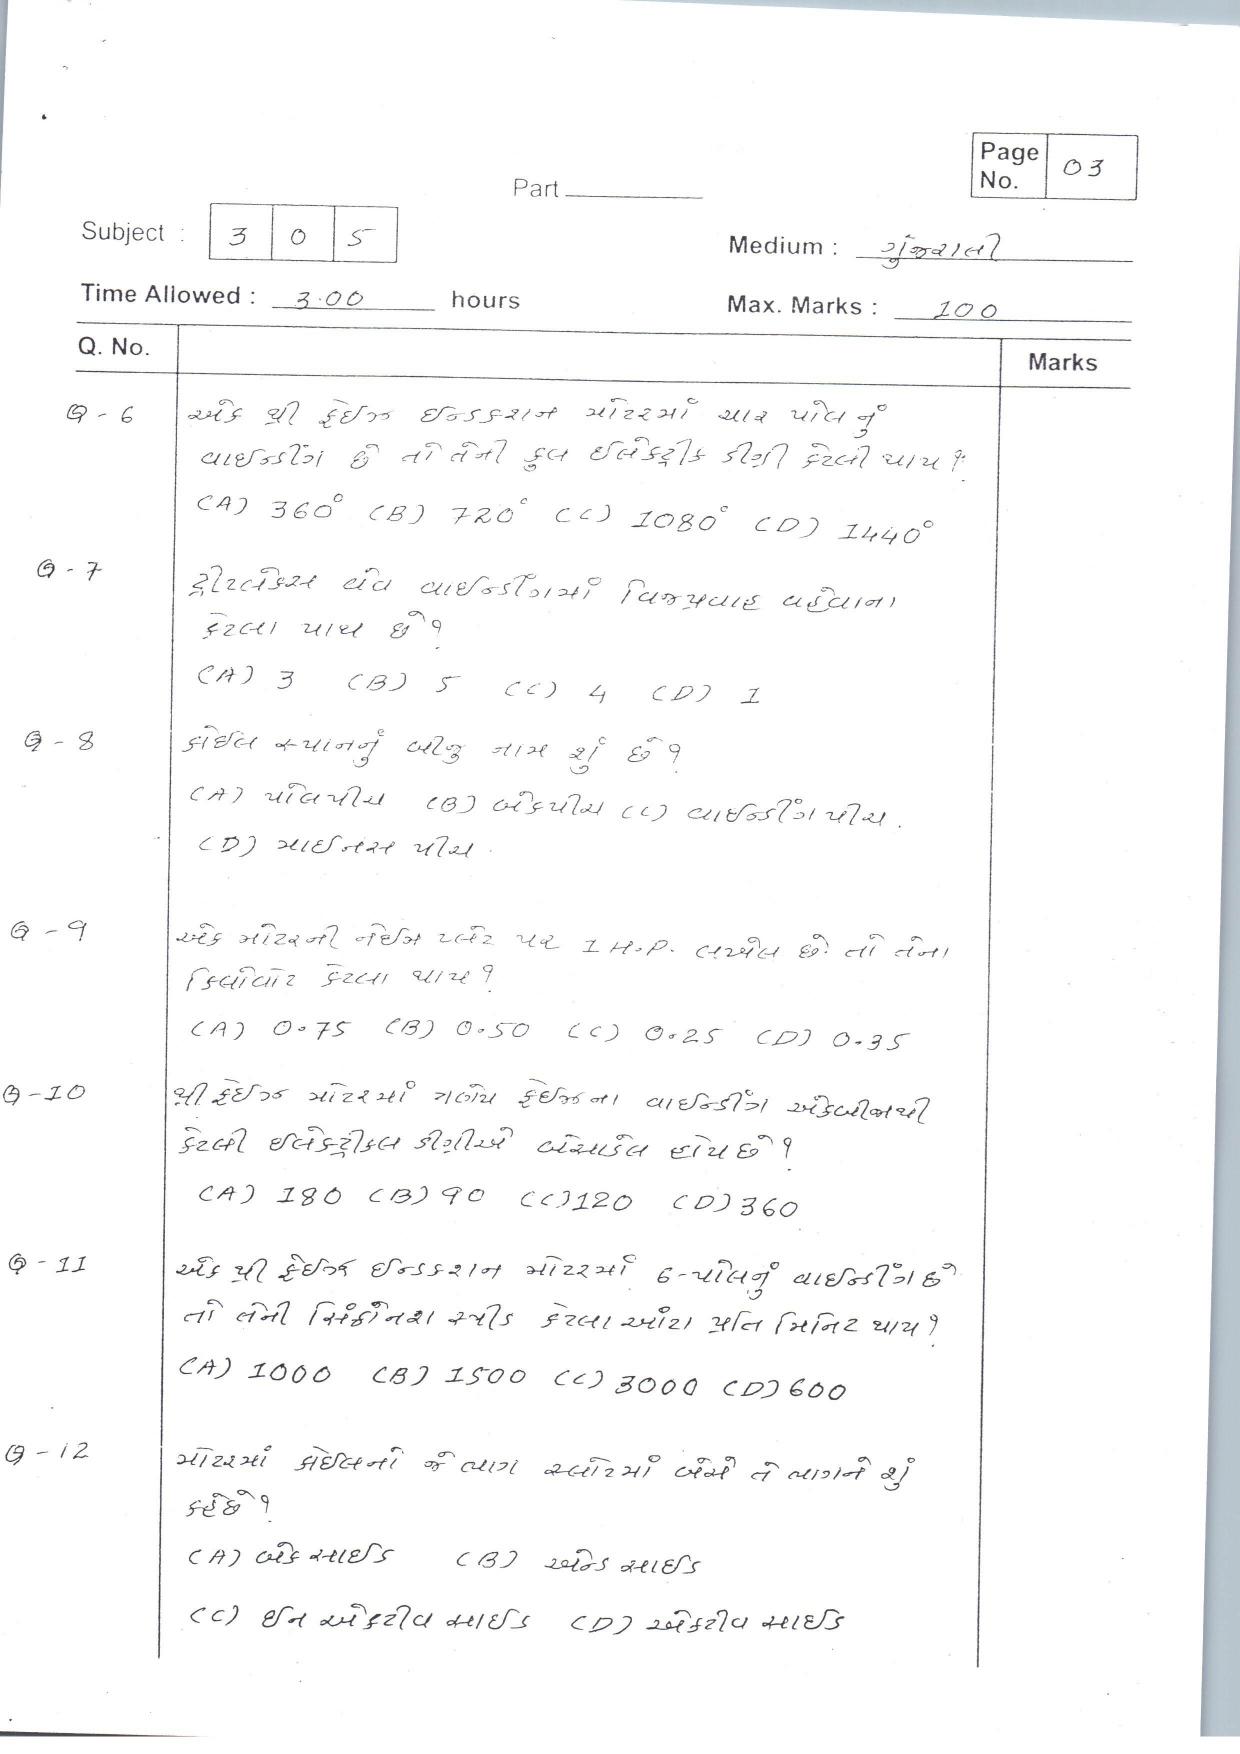 Page No. 03
Part
Subject : 3 0 5
Medium : ગુજરાતી
Time Allowed : 3.00 hours
Max. Marks : 100
Q. No.
Marks
Q - 6 એક થ્રી ફેઈઝ ઇન્ડકશન મોટરમાં ચાર પોલ નું
વાઇન્ડીંગ છે તો તેની કુલ ઇલેકટ્રીક ડીગ્રી કેટલી થાય ?
(A) 360° (B) 720° (C) 1080° (D) 1440°
Q - 7 વાઇન્ડીંગમાં વિજપ્રવાહ વહેવાના
કેટલા પાથ છે ?
(A) 3 (B) 5 (C) 4 (D) 1
Q - 8 કોઇલ સ્પાનનું બીજુ નામ શું છે ?
(A) પોલપીચ (B) બેકપીચ (C) વાઇન્ડીંગ પીચ.
(D) માઇનસ પીચ.
Q - 9 એક મોટરની નેઇમ પ્લેટ પર 1 H.P. લખેલ છે. તો તેના
કિલોવોટ કેટલા થાય ?
(A) 0.75 (B) 0.50 (C) 0.25 (D) 0.35
Q-10 થ્રી ફેઇઝ મોટરમાં ત્રણેય ફેઇઝના વાઇન્ડીંગ એકબીજાથી
કેટલી ઇલેકટ્રીકલ ડીગ્રીએ બેસાડેલ હોય છે ?
(A) 180 (B) 90 (C) 120 (D) 360
Q - 11 એક થ્રી ફેઇઝ ઇન્ડકશન મોટરમાં 6-પોલનું વાઇન્ડીંગ છે
તો તેની સિંક્રોનશ સ્પીડ કેટલા આંટા પ્રતિ મિનિટ થાય ?
(A) 1000 (B) 1500 (C) 3000 (D) 600
Q - 12 મોટરમાં કોઇલનો જે ભાગ સ્લોટમાં બેસે તે ભાગને શું
કહે છે ?
(A) બેક સાઇડ (B) એન્ડ સાઇડ
(C) ઇન એકટીવ સાઇડ (D) એકટીવ સાઇડ